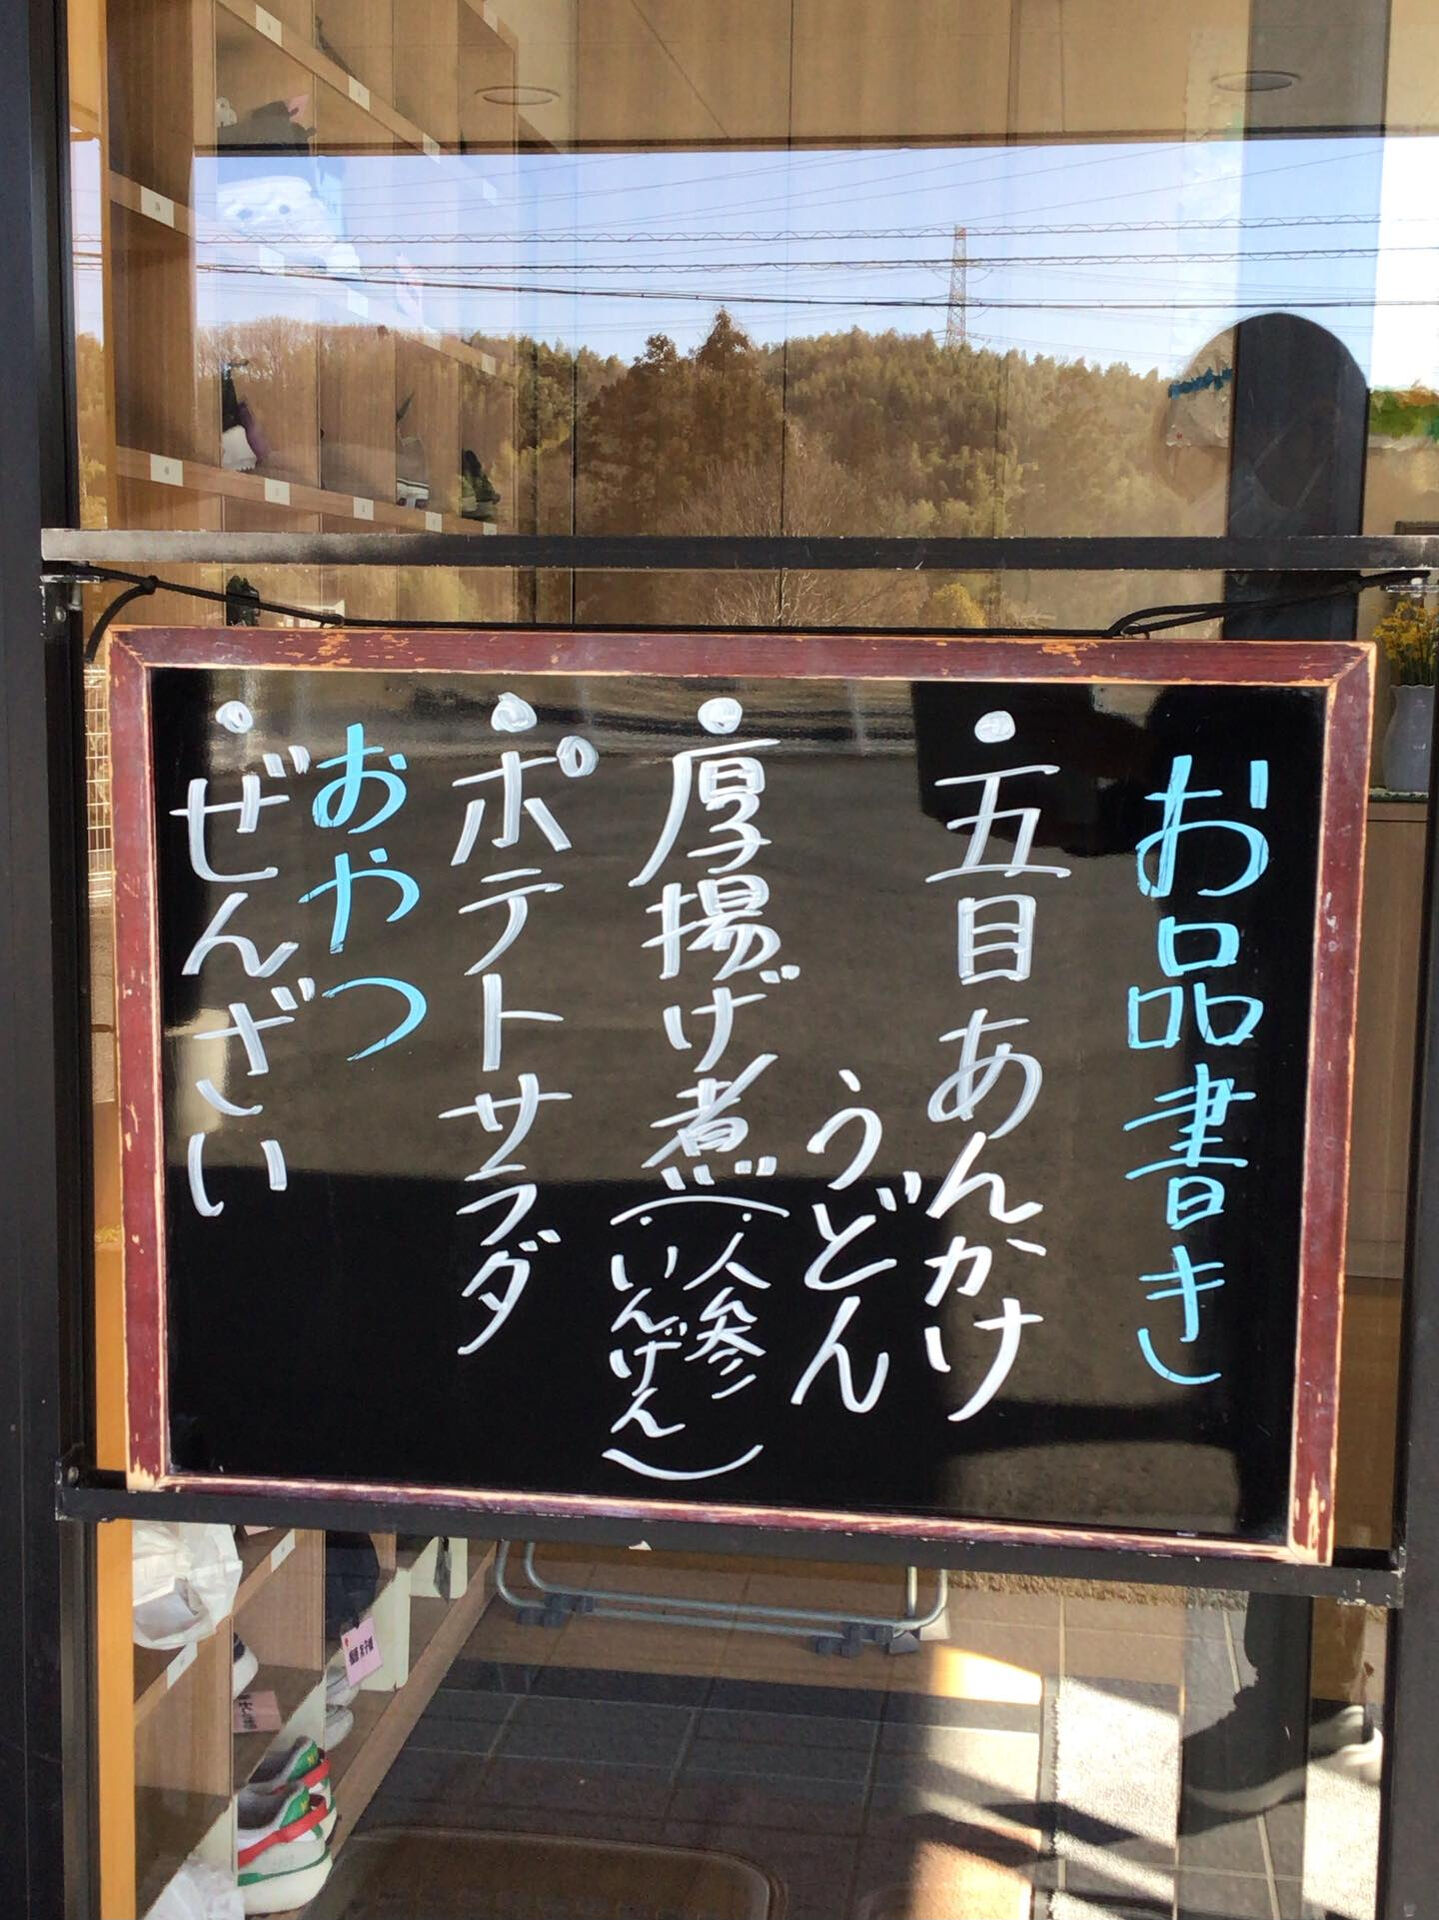 お品書き
・五目あんかけ
うどん
・厚揚げ煮
(・人参
・いんげん)
・ポテトサラダ
おやつ
・ぜんざい